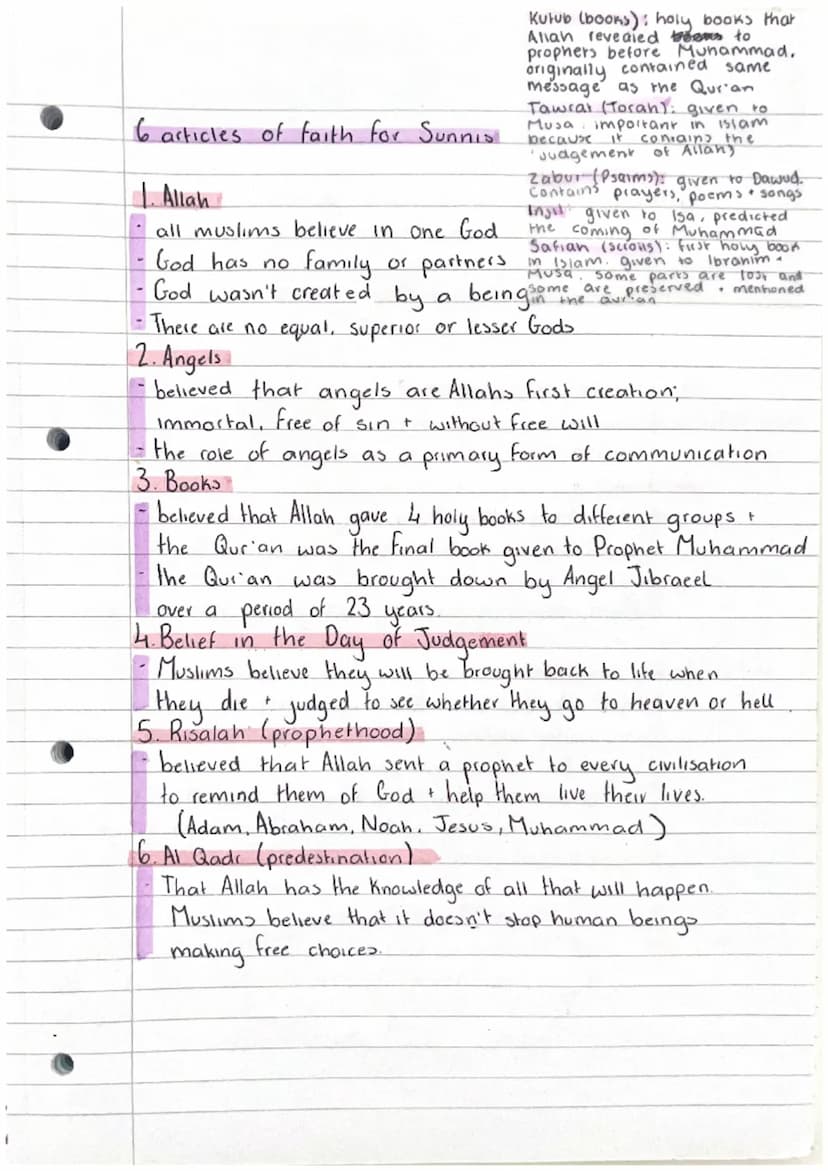 Kutub (books): holy books that
Allah revealed to
prophets before Muhammad.
originally contained same
message as the Qur'an
Tawrat (Torah): given to
Musa. important in islam
because it contains the
'judgement of Allah'
Zabur (Psalms): given to Dawud.
Contains prayers, poems + songs
Injil: given to Isa, predicted
the coming of Muhammad
Safiah (scrolls): first holy book
in Islam. given to Ibrahim +
Musa. some parts are lost and
some are preserved + mentioned
in the Qur'an
6 articles of faith for Sunnis
1. Allah
- all muslims believe in one God
- God has no family or partners
- God wasn't created by a being
- There are no equal, superior or lesser Gods
2. Angels
- believed that angels are Allahs first creation;
immortal, free of sin + without free will
- the role of angels as a primary form of communication
3. Books
- believed that Allah gave 4 holy books to different groups +
the Qur'an was the final book given to Prophet Muhammad
- the Qur'an was brought down by Angel Jibraeel
over a period of 23 years.
4. Belief in the Day of Judgement
- Muslims believe they will be brought back to life when
they die + judged to see whether they go to heaven or hell.
5. Risalah (prophethood)
- believed that Allah sent a prophet to every civilisation
to remind them of God + help them live their lives.
(Adam, Abraham, Noah, Jesus, Muhammad)
6. Al Qadr (predestination)
- That Allah has the knowledge of all that will happen.
Muslims believe that it doesn't stop human beings
making free choices.